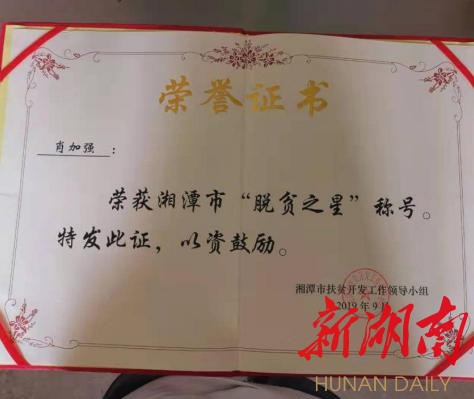 荣誉证书
肖加强：
荣获湘潭市“脱贫之星”称号。
特发此证，以资鼓励。
湘潭市扶贫开发工作领导小组
2019年9月
新湖南
HUNAN DAILY